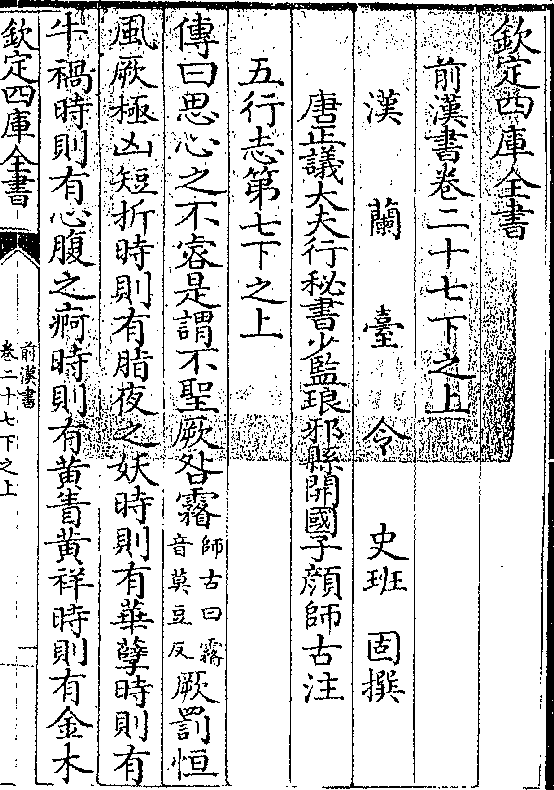 欽定四庫全書
前漢書卷二十七下之上
漢蘭臺令史班固撰
唐正議大夫行秘書少監琅邪縣開國子顔師古注
五行志第七下之上
傳曰思心之不容是謂不聖厥咎霿師古曰霿音莫豆反厥罰恒
風厥極凶短折時則有脂夜之妖時則有華孽時則有
牛禍時則有心腹之痾時則有黄眚黄祥時則有金木
欽定四庫全書
前漢書
卷二十七下之上